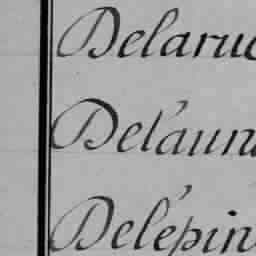 Delarue
Delaun
Delépin